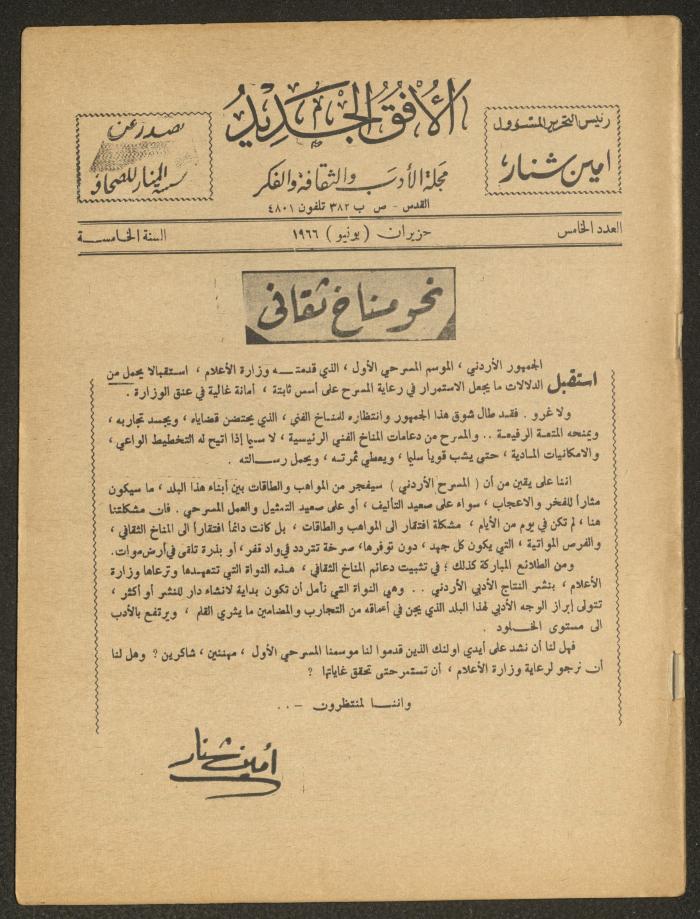 رئيس التحرير المسؤول
امين شنار
الأفق الجديد
مجلة الأدب والثقافة والفكر
القدس - ص ب ٣٨٢ تلفون ٤٨٠١
تصدر عن
المنار للصحافة
العدد الخامس
حزيران ( يونيو ) ١٩٦٦
السنة الخامسة
نحو مناخ ثقافي
استقبل الجمهور الأردني ، الموسم المسرحي الأول ، الذي قدمته وزارة الأعلام ، استقبالا يحمل من
الدلالات ما يجعل الاستمرار في رعاية المسرح على أسس ثابتة ، أمانة غالية في عنق الوزارة .
ولا غرو . فقد طال شوق هذا الجمهور وانتظاره للمناخ الفني ، الذي يحتضن قضاياه ، ويجسد تجاربه ،
ويمنحه المتعة الرفيعة .. والمسرح من دعامات المناخ الفني الرئيسية ، لا سيما إذا اتيح له التخطيط الواعي ،
والامكانيات المادية ، حتى يشب قويا سليما ، ويعطي ثمرته ، ويحمل رسالته .
اننا على يقين من أن ( المسرح الأردني ) سيفجر من المواهب والطاقات بين أبناء هذا البلد ، ما سيكون
مثاراً للفخر والاعجاب ، سواء على صعيد التأليف ، أو على صعيد التمثيل والعمل المسرحي . فان مشكلتنا
هنا ، لم تكن في يوم من الأيام ، مشكلة افتقار الى المواهب والطاقات ، بل كانت دائماً افتقاراً الى المناخ الثقافي ،
والفرص المواتية ، التي يكون كل جهد ، دون توفرها، صرخة تتردد في واد قفر ، أو بذرة تلقى في أرض موات.
ومن الطلائع المباركة كذلك ؛ في تشبيت دعائم المناخ الثقافي ، هذه النواة التي تتعهدها وترعاها وزارة
الأعلام ، بنشر النتاج الأدبي الأردني .. وهي النواة التي نأمل أن تكون بداية لانشاء دار للنشر أو أكثر ،
تتولى إبراز الوجه الأدبي لهذا البلد الذي يجن في أعماقه من التجارب والمضامين ما يثري القلم ، ويرتفع بالأدب
الى مستوى الخلود .
فهل لنا أن نشد على أيدي اولئك الذين قدموا لنا موسمنا المسرحي الأول ، مهنئين ، شاكرين ؟ وهل لنا
أن نرجو لرعاية وزارة الأعلام ، أن تستمر حتى تحقق غاياتها ؟
واننا لمنتظرون - ..
أمين شنار